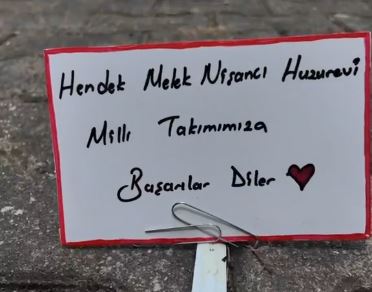 Hendek Melek Nişancı Huzurevi
Milli Takımımıza
Başarılar Diler